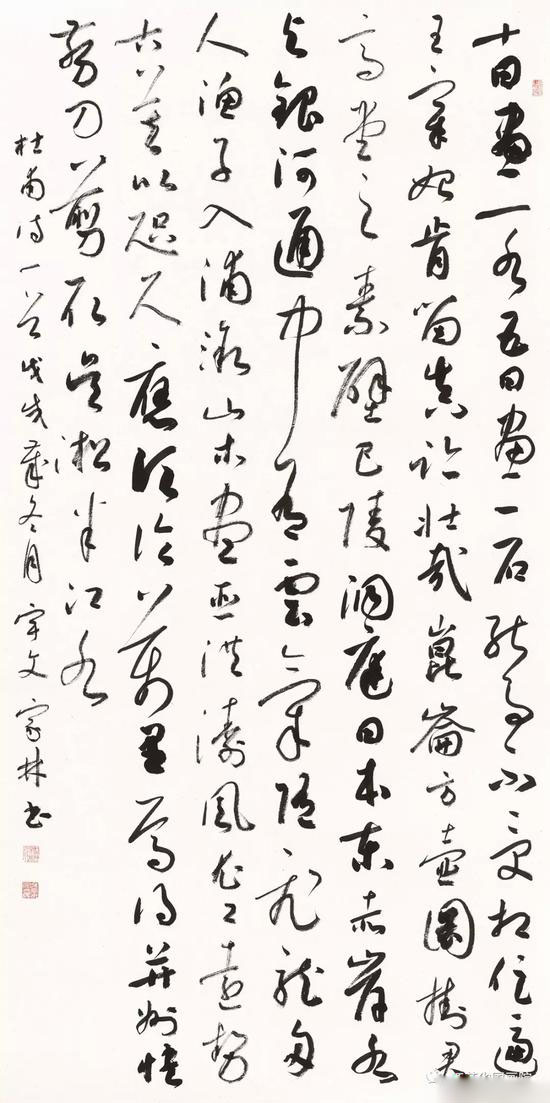 十日畫一水五日畫一石能事不受相促逼
王宰始肯留真跡壯哉崑崙方壺圖掛君
高堂之素壁巴陵洞庭日本東赤岸水
與銀河通中有雲氣隨飛龍舟
人漁子入浦溆山木盡亞洪濤風尤工遠勢
古莫比咫尺應須論萬里焉得并州快
剪刀剪取吳淞半江水
杜甫詩一首戊戌歲冬月宇文家林書